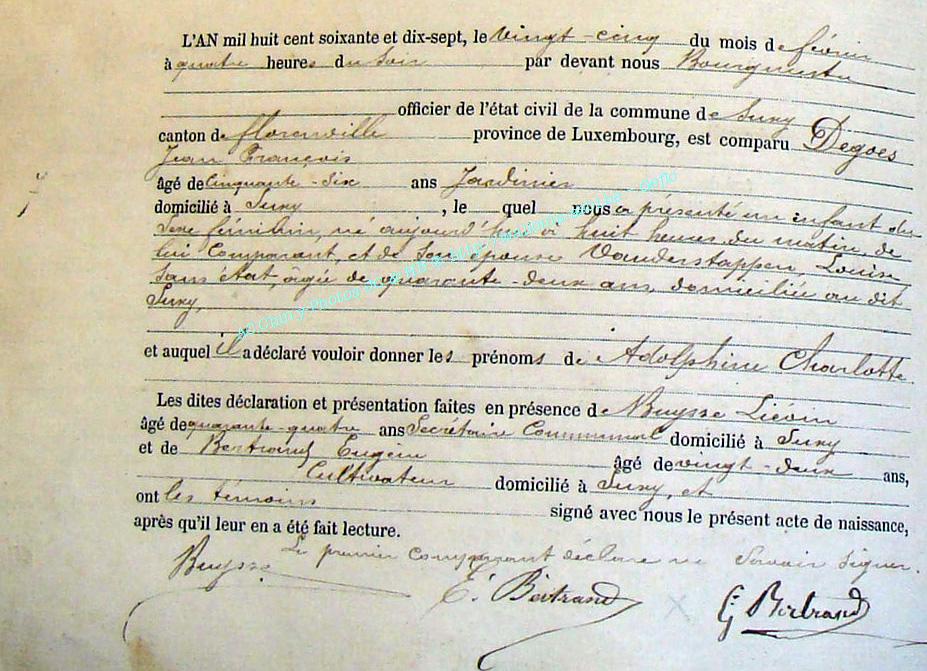 L'AN mil huit cent soixante et dix-sept, le vingt-cinq du mois de février
à quatre heures du soir par devant nous Bourgmestre
officier de l'état civil de la commune de Suxy
canton de florenville province de Luxembourg, est comparu Degoes
Jean François
âgé de cinquante-six ans Jardinier
domicilié à Suxy, le quel nous a présenté un enfant du
sexe féminin, né aujourd'hui à huit heures du matin, de
lui Comparant, et de son épouse Vanderstappen, Louise
sans état, âgée de quarante-deux ans, domiciliée au dit
Suxy,
et auquel il a déclaré vouloir donner les prénoms de Adolphine Charlotte.
Les dites déclaration et présentation faites en présence de Buysse Liévin
âgé de quarante-quatre ans Secrétaire Communal domicilié à Suxy
et de Bertrand Eugène âgé de vingt-deux ans,
Cultivateur domicilié à Suxy, et
ont les témoins signé avec nous le présent acte de naissance,
après qu'il leur en a été fait lecture.
Le premier comparant déclare ne savoir signer.
Buysse E. Bertrand Bertrand